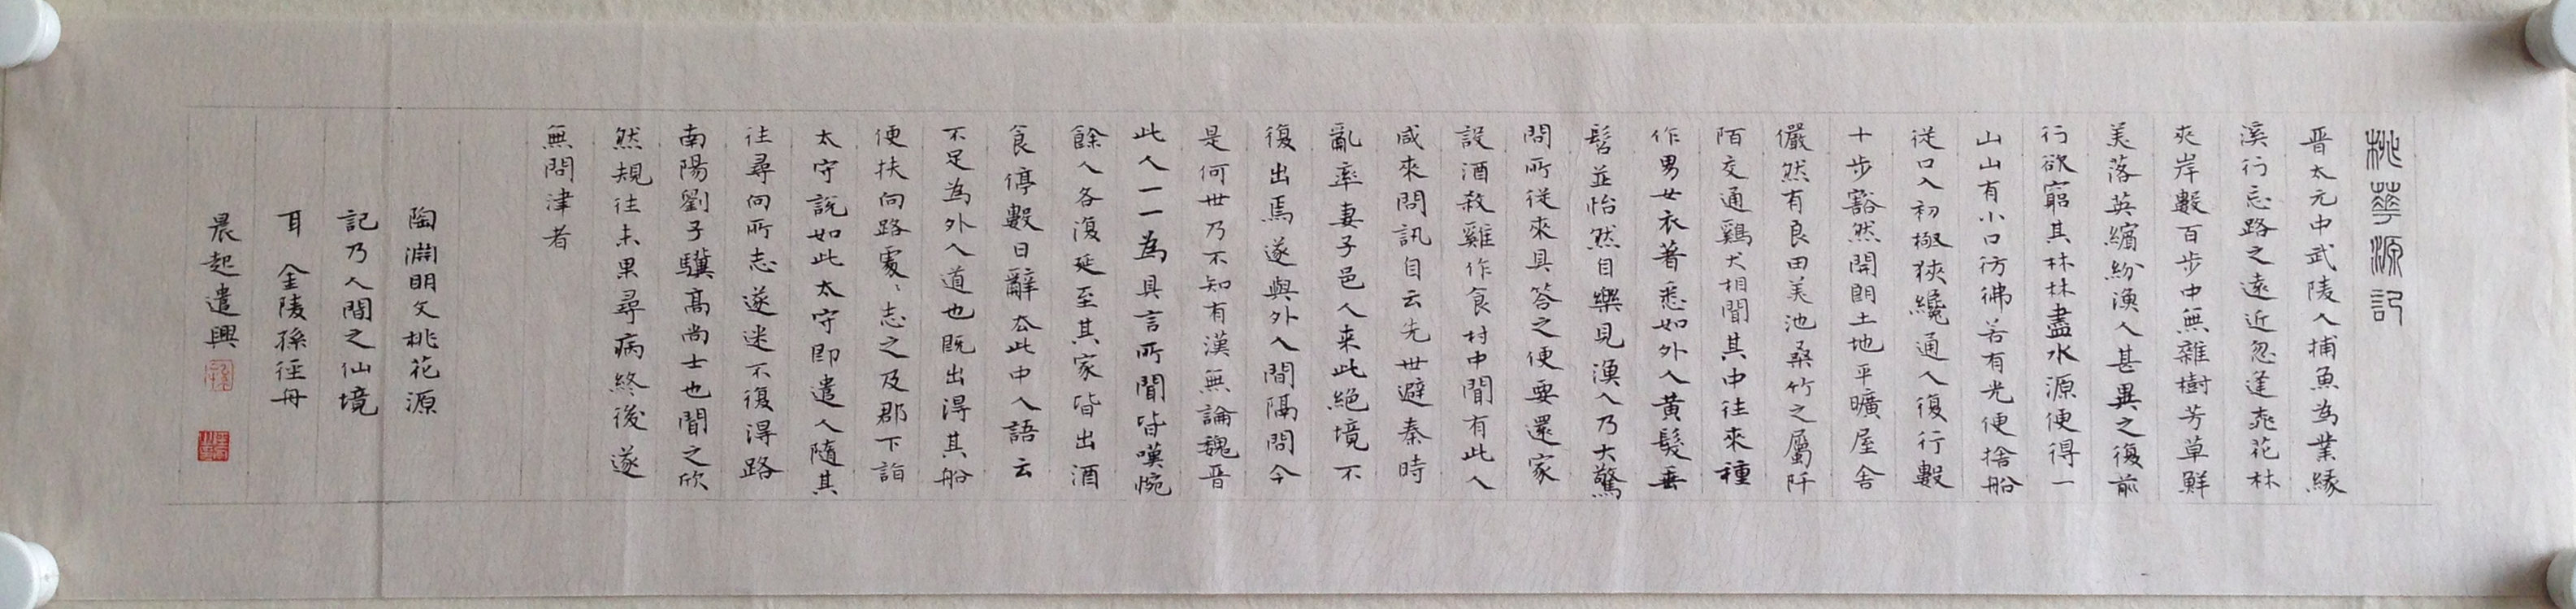 桃華源記
晋太元中武陵人捕魚為業緣
溪行忘路之遠近忽逢桃花林
夾岸數百步中無雜樹芳草鮮
美落英繽紛漁人甚異之復前
行欲窮其林林盡水源便得一
山山有小口彷彿若有光便捨船
從口入初極狹纔通人復行數
十步豁然開朗土地平曠屋舍
儼然有良田美池桑竹之屬阡
陌交通鷄犬相聞其中往來種
作男女衣著悉如外人黃髮垂
髫並怡然自樂見漁人乃大驚
問所從來具答之便要還家
設酒殺雞作食村中聞有此人
咸來問訊自云先世避秦時
亂率妻子邑人来此絕境不
復出焉遂與外人間隔問今
是何世乃不知有漢無論魏晉
此人一一為具言所聞皆嘆惋
餘人各復延至其家皆出酒
食停數日辭去此中人語云
不足為外人道也既出得其船
便扶向路處〻志之及郡下詣
太守說如此太守即遣人隨其
往尋向所志遂迷不復得路
南陽劉子驥高尚士也聞之欣
然規往未果尋病終後遂
無問津者
陶淵明文桃花源
記乃人間之仙境
耳 金陵孫徑舟
晨起遣興